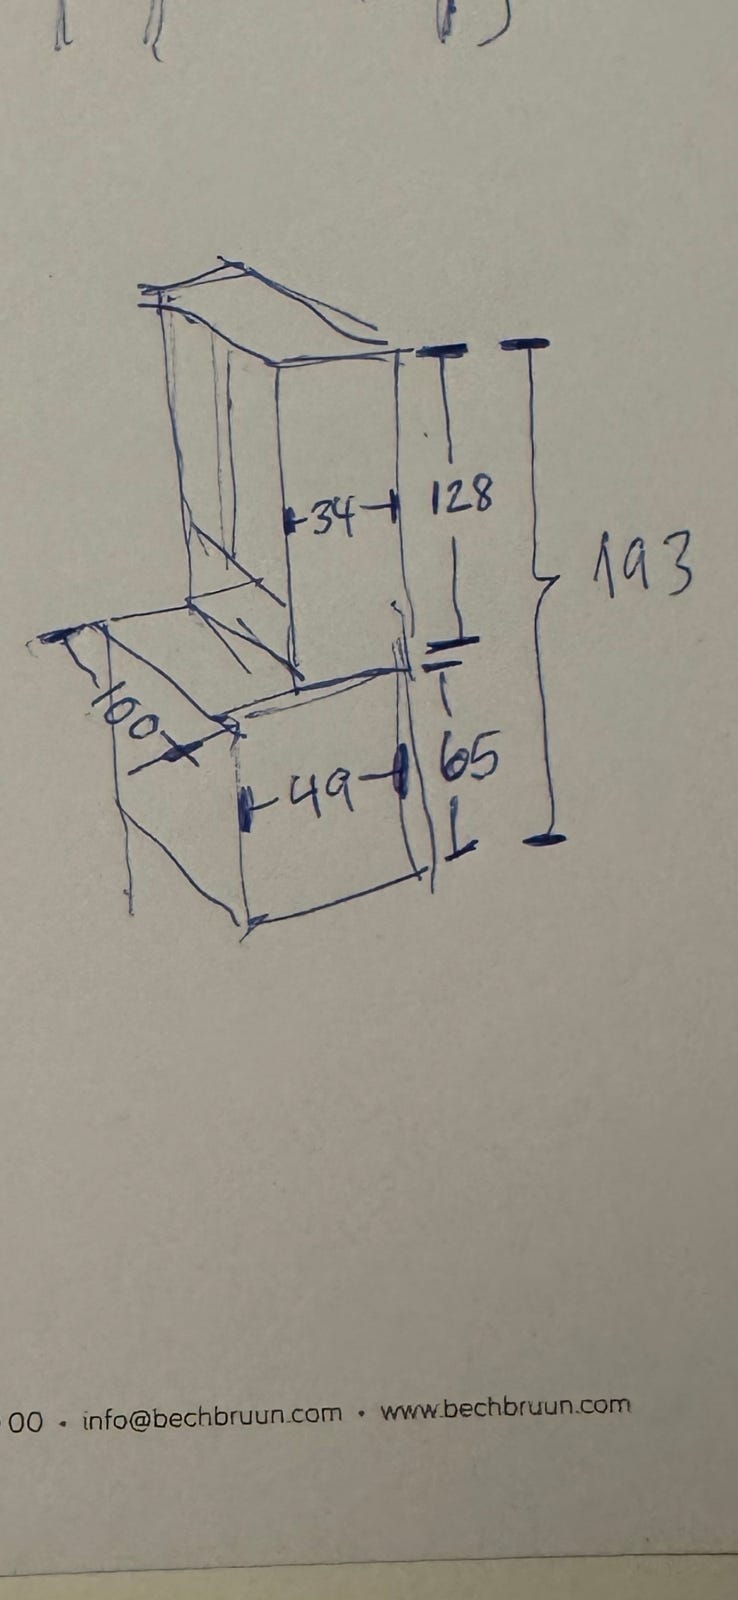 34
128
193
100
49
65
00 • info@bechbruun.com • www.bechbruun.com